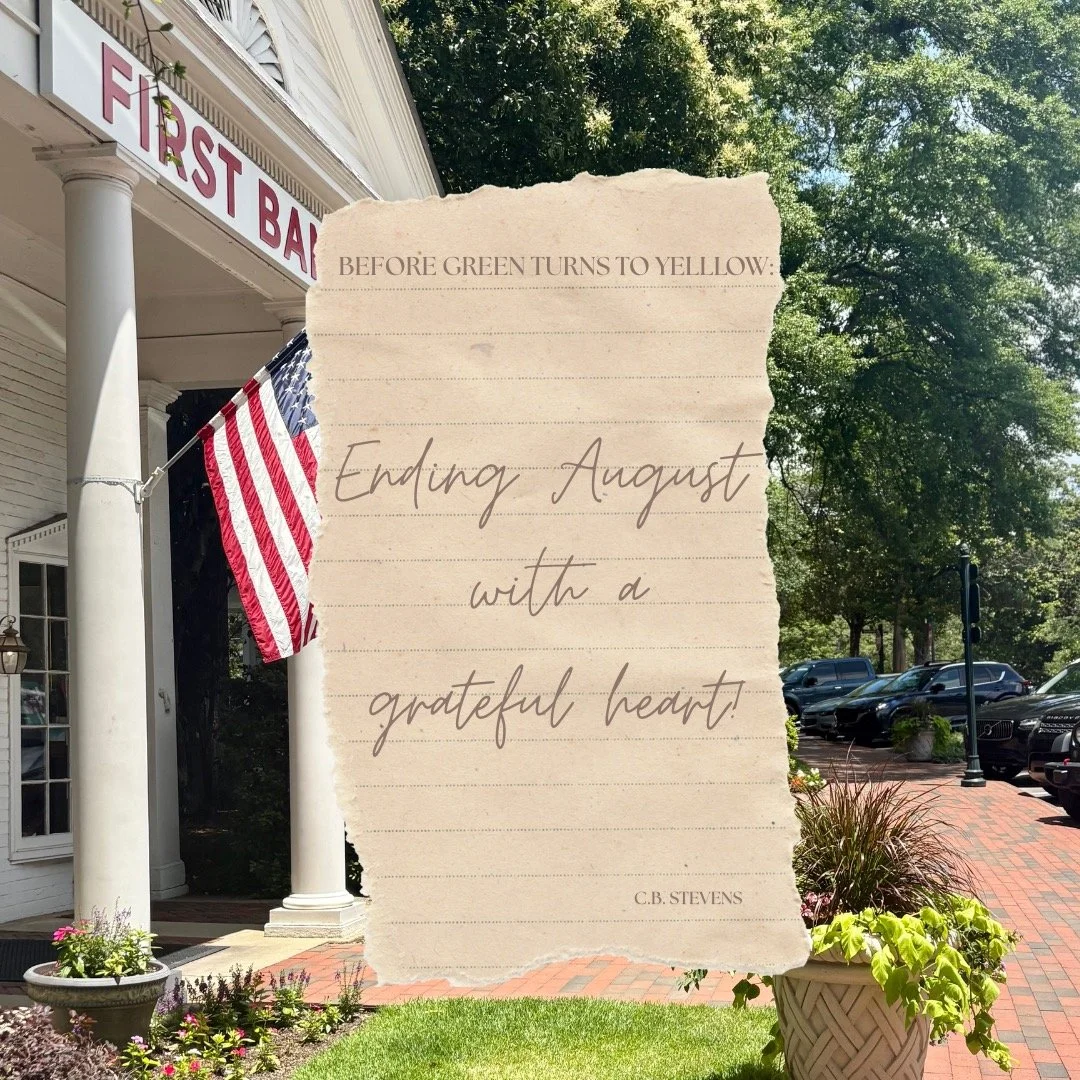 FIRST BA
BEFORE GREEN TURNS TO YELLLOW:
Ending August
with a
grateful heart!
C.B. STEVENS